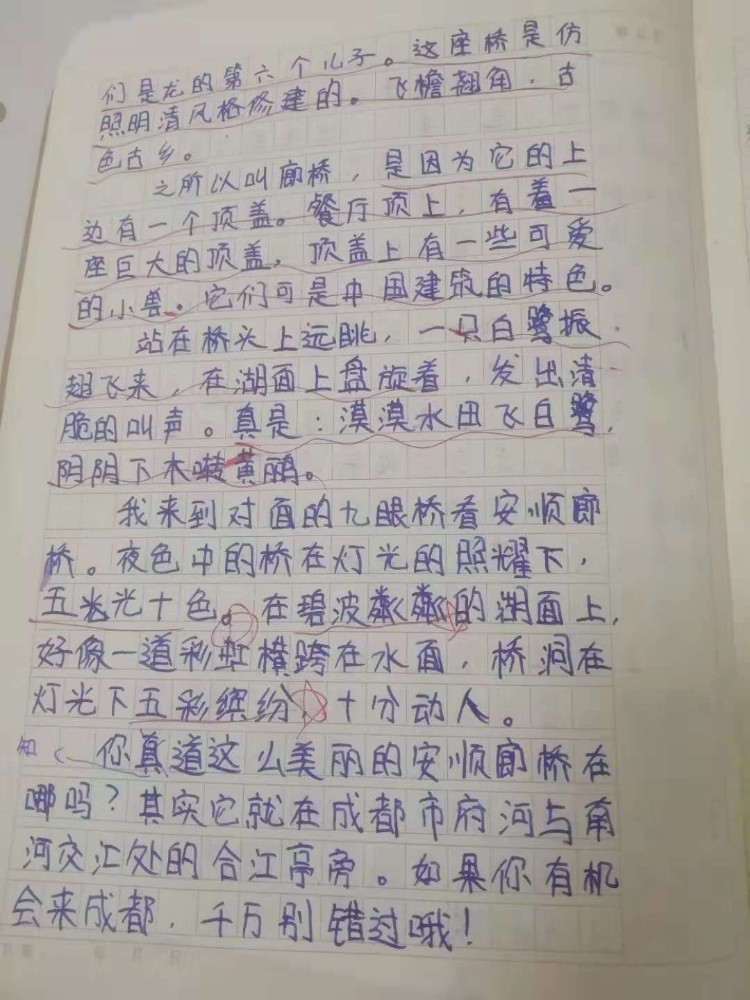 们是龙的第六个儿子。这座桥是仿
照明清风格修建的。飞檐翘角，古
色古乡。
之所以叫廊桥，是因为它的上
边有一个顶盖。餐厅顶上，有着一
座巨大的顶盖，顶盖上有一些可爱
的小兽。它们可是中国建筑的特色。
站在桥头上远眺，一只白鹭振
翅飞来，在湖面上盘旋着，发出清
脆的叫声。真是：漠漠水田飞白鹭，
阴阴下木啭黄鹂。
我来到对面的九眼桥看安顺廊
桥。夜色中的桥在灯光的照耀下，
五光十色。在碧波粼粼的湖面上，
好像一道彩虹横跨在水面，桥洞在
灯光下五彩缤纷，十分动人。
知
你真道这么美丽的安顺廊桥在
哪吗？其实它就在成都市府河与南
河交汇处的合江亭旁。如果你有机
会来成都，千万别错过哦！